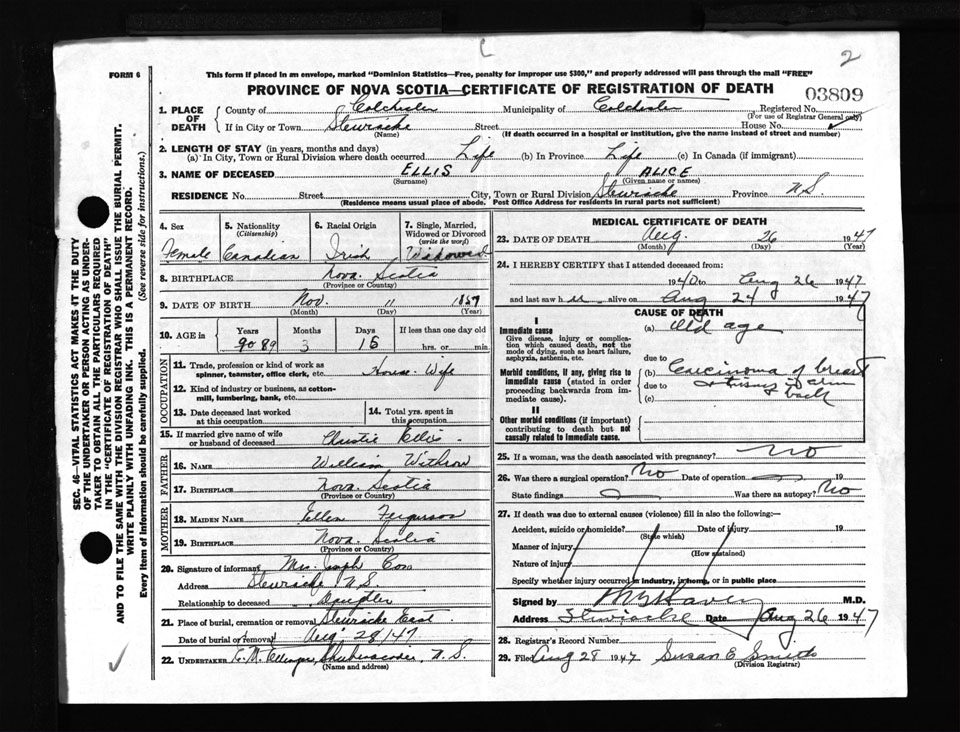 2
FORM 6
This form if placed in an envelope, marked "Dominion Statistics—Free, penalty for improper use $300," and properly addressed will pass through the mail "FREE"
PROVINCE OF NOVA SCOTIA—CERTIFICATE OF REGISTRATION OF DEATH
03809
1. PLACE OF DEATH
County of Colchester Municipality of Colchester Registered No.
(For use of Registrar General only)
If in City or Town Stewiacke Street House No.
(Name) (If death occurred in a hospital or institution, give the name instead of street and number)
2. LENGTH OF STAY (in years, months and days)
(a) In City, Town or Rural Division where death occurred Life (b) In Province Life (c) In Canada (if immigrant)
3. NAME OF DECEASED ELLIS ALICE
(Surname) (Given name or names)
RESIDENCE No. Street City, Town or Rural Division Stewiacke Province N.S.
(Residence means usual place of abode. Post Office Address for residents in rural parts not sufficient)
4. Sex
Female
5. Nationality
(Citizenship)
Canadian
6. Racial Origin
Irish
7. Single, Married, Widowed or Divorced
(write the word)
Widowed
8. BIRTHPLACE Nova Scotia
(Province or Country)
9. DATE OF BIRTH Nov. 11 1857
(Month) (Day) (Year)
10. AGE in
Years Months Days If less than one day old
90 89 3 15 hrs. or min.
OCCUPATION
11. Trade, profession or kind of work as spinner, teamster, office clerk, etc. House Wife
12. Kind of industry or business, as cotton-mill, lumbering, bank, etc.
13. Date deceased last worked at this occupation
14. Total yrs. spent in this occupation
15. If married give name of wife or husband of deceased Christie Ellis
FATHER
16. NAME William Withrow
17. BIRTHPLACE Nova Scotia
(Province or Country)
MOTHER
18. MAIDEN NAME Ellen Ferguson
19. BIRTHPLACE Nova Scotia
(Province or Country)
20. Signature of informant Mrs. Joseph Cox
Address Stewiacke N.S.
Relationship to deceased Daughter
21. Place of burial, cremation or removal Stewiacke East
Date of burial or removal Aug 28/47
22. UNDERTAKER Shubenacadie, N.S.
(Name and address)
MEDICAL CERTIFICATE OF DEATH
23. DATE OF DEATH Aug. 26 1947
(Month) (Day) (Year)
24. I HEREBY CERTIFY that I attended deceased from:
1940 to Aug 26 1947
and last saw her alive on Aug 24 1947
CAUSE OF DEATH
I
Immediate cause
Give disease, injury or complication which caused death, not the mode of dying, such as heart failure, asphyxia, asthenia, etc.
(a) Old age
due to
Morbid conditions, if any, giving rise to immediate cause (stated in order proceeding backwards from immediate cause).
(b) Carcinoma of breast
due to
(c)
II
Other morbid conditions (if important) contributing to death but not causally related to immediate cause.
25. If a woman, was the death associated with pregnancy? No
26. Was there a surgical operation? No Date of operation 19
State findings Was there an autopsy? No
27. If death was due to external causes (violence) fill in also the following:—
Accident, suicide or homicide? Date of injury 19
(State which)
Manner of injury
(How sustained)
Nature of injury
Specify whether injury occurred in industry, in home, or in public place
Signed by M.D.
Address Stewiacke Date Aug 26 1947
28. Registrar's Record Number
29. Filed Aug 28 1947 Susan E Smith
(Division Registrar)
SEC. 46—VITAL STATISTICS ACT MAKES IT THE DUTY
OF THE UNDERTAKER OR PERSON ACTING AS UNDERTAKER
TO OBTAIN ALL THE PARTICULARS REQUIRED
IN THE "CERTIFICATE OF REGISTRATION OF DEATH"
AND TO FILE THE SAME WITH THE DIVISION REGISTRAR WHO SHALL ISSUE THE BURIAL PERMIT.
WRITE PLAINLY WITH UNFADING INK. THIS IS A PERMANENT RECORD.
Every item of Information should be carefully supplied. (See reverse side for instructions.)